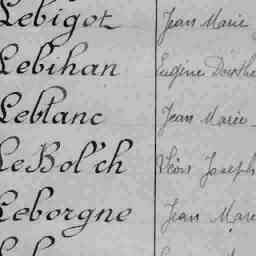 Lebigot Jean Marie
Lebihan Eugène
Leblanc Jean Marie
LeBol'ch Joseph
Leborgne Jean Marie